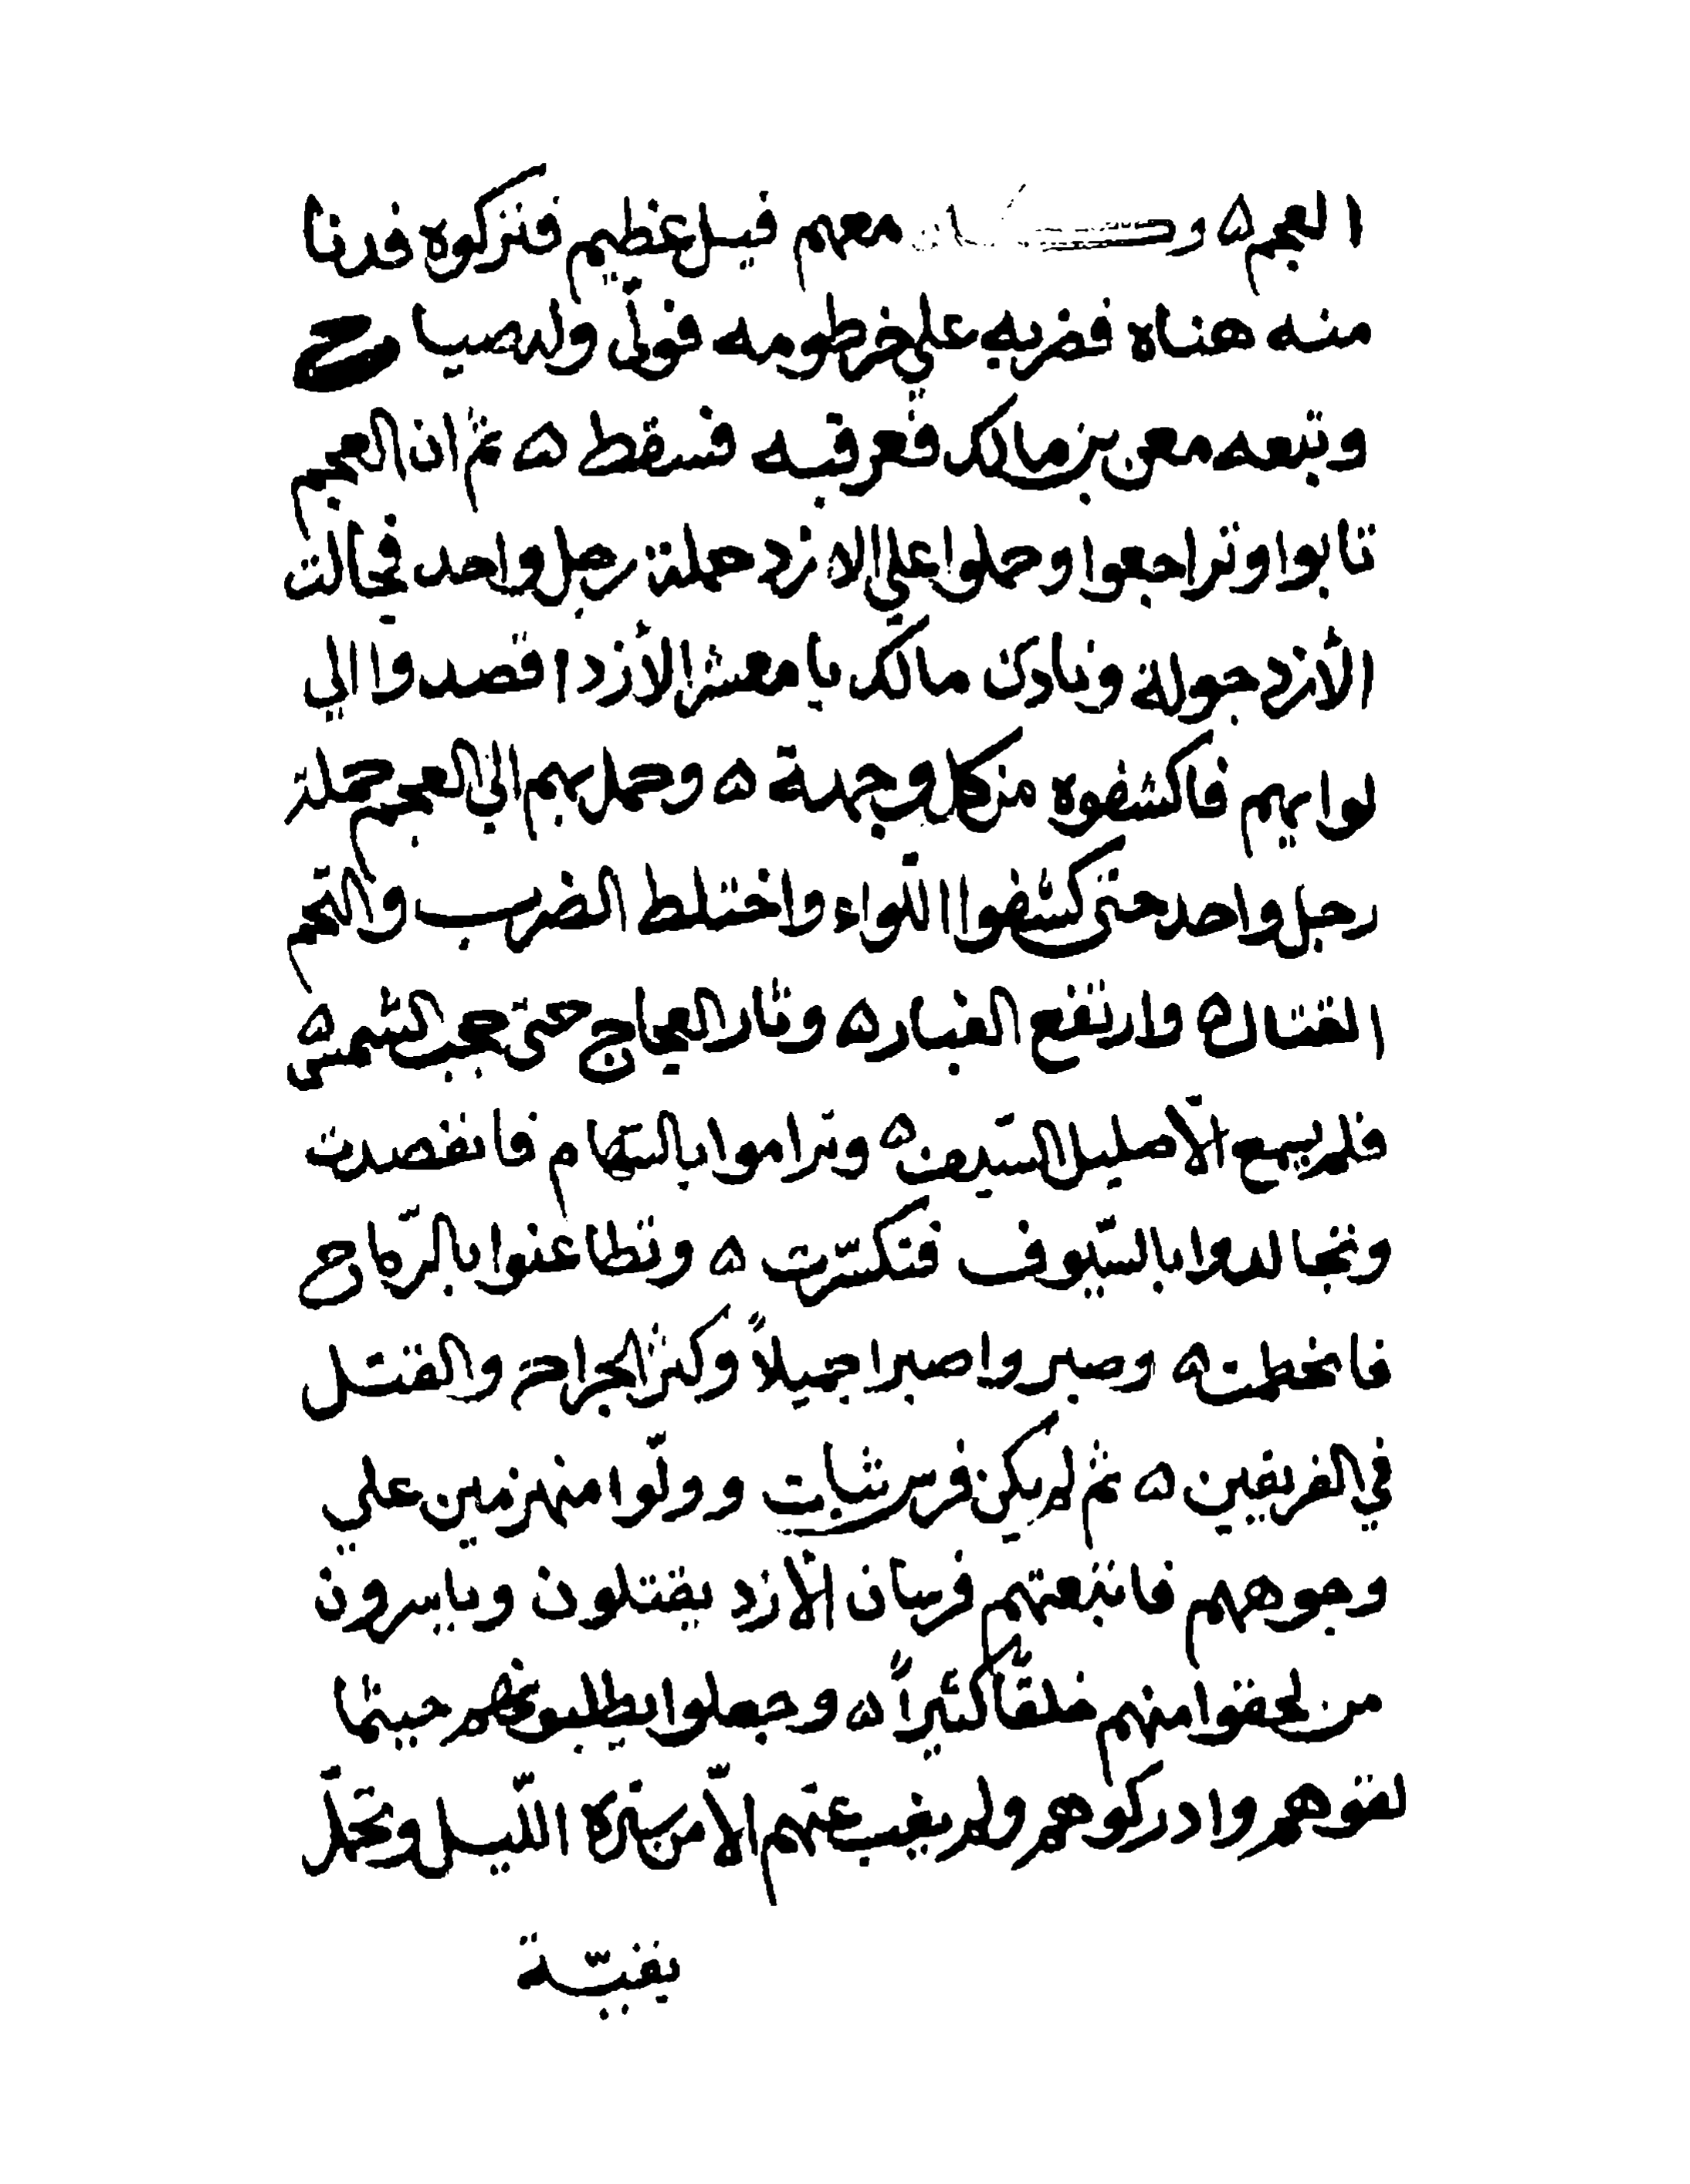 العجم ۵ وكان معهم فيل عظيم فتركوه فدنا
منه هناه فضربه على خرطومه فولّى وله صياح
وتبعه معن بن مالك فعرقبه فسقط ۵ ثم ان العجم
تابوا وتراجعوا وحملوا علي الازد حملة رجل واحد فجالت
الأزد جولة ونادى مالك يا معشر الازد اقصدوا الي
لوايهم فاكشفوه من كل وجهة ۵ وحمل بهم الي العجم حملة
رجل واحد حتى كشفوا اللواء واختلط الضرب والتحم
القتال ۵ وارتفع الغبار ۵ وثار العجاج حتى حجب الشمس ۵
فلم يسمع الّا صليل السّيوف ۵ وتراموا بالسّهام فانقصدت
وتجالدوا بالسّيوف فتكسّرت ۵ وتطاعنوا بالرّماح
فانحطمت ۵ وصبروا صبرا جميلاً وكثر الجراح والقتل
في الفريقين ۵ ثم لم يكن فرس ثبات وولّوا منهزمين علي
وجوههم فاتبعتهم فرسان الأزد يقتلون وياسرون
من لحقوا منهم خلقاً كثيراً ۵ وجعلوا يطلبونهم حيثما
لقوهم وادركوهم ولم يغب عنهم الّا من ستره اللّيل وتحمّل
بقيّة